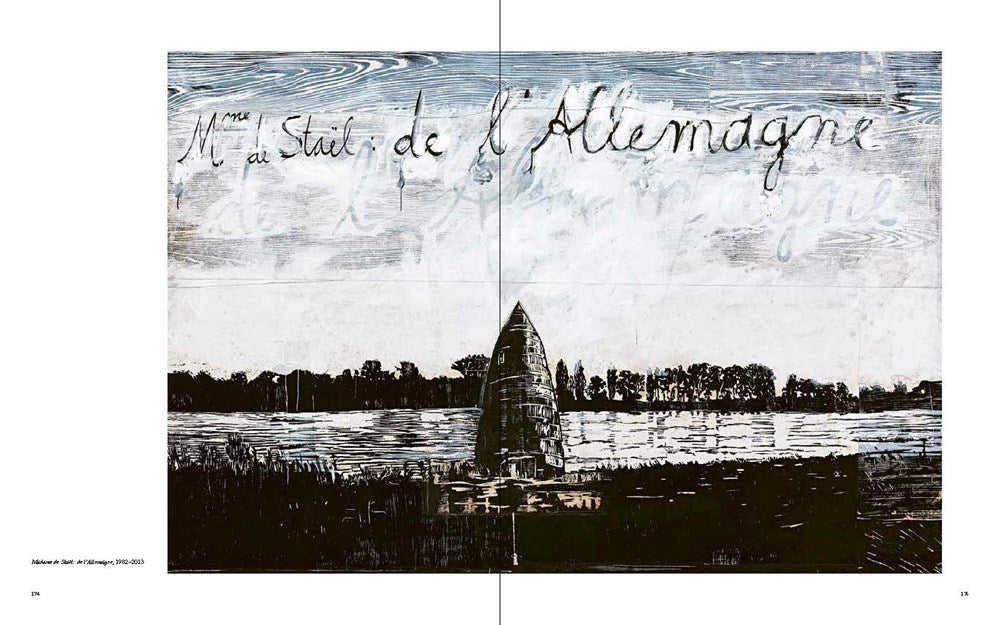 Mme de Staël : de l'Allemagne
de l'Allemagne
Madame de Staël: de l'Allemagne, 1982–2013
174
175